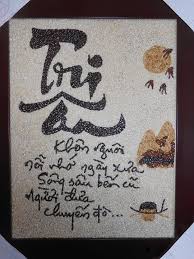 Tri
Ân
Khôn người
nỗi nhớ ngày xưa
Sông sâu bến cũ
Người đưa
chuyến đò...